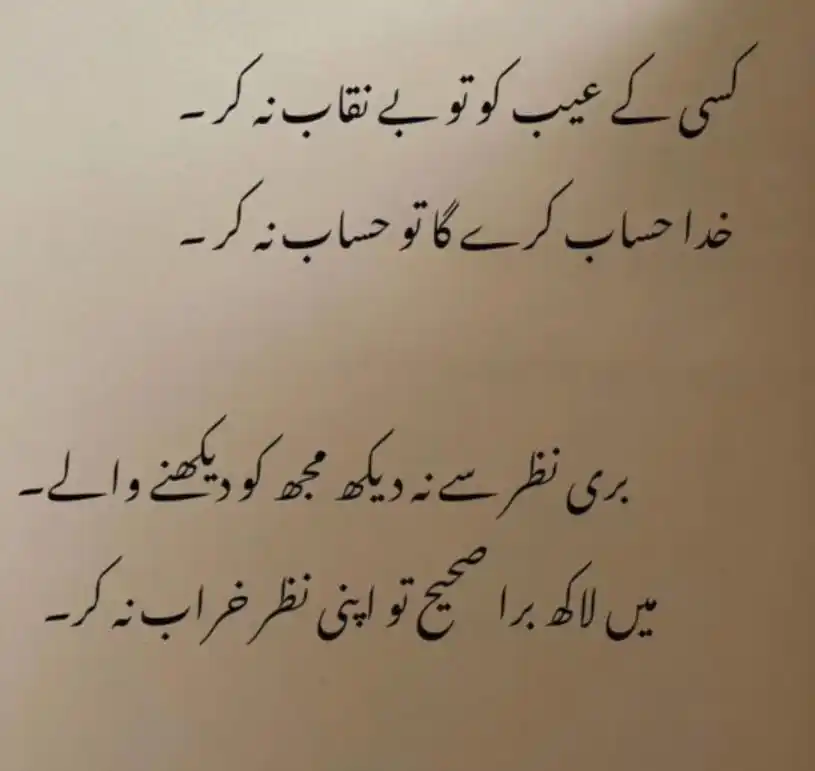 کسی کے عیب کو تو بے نقاب نہ کر ۔
خدا حساب کرے گا تو حساب نہ کر ۔
بری نظر سے نہ دیکھ مجھ کو دیکھنے والے ۔
میں لاکھ برا صحیح تو اپنی نظر خراب نہ کر ۔